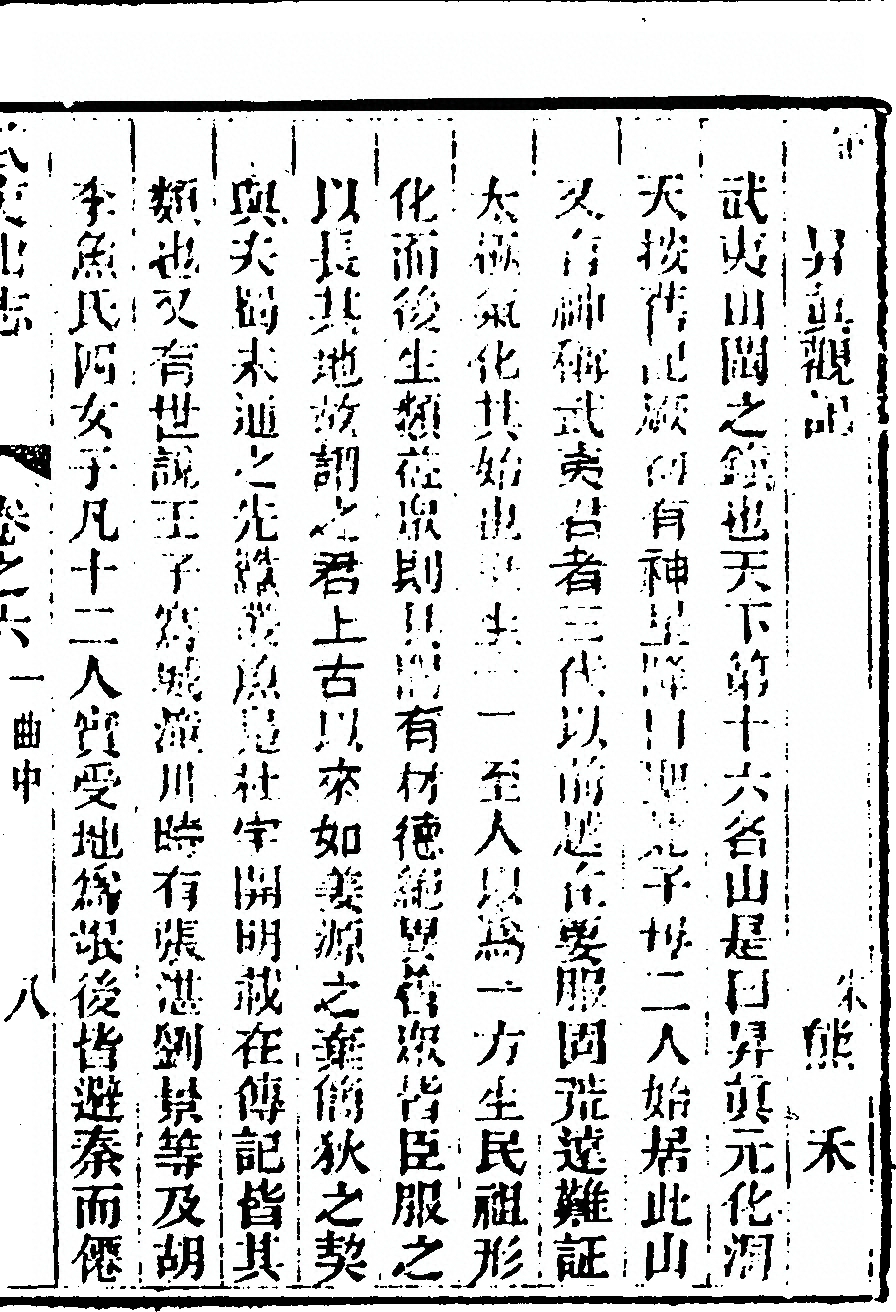 昇眞觀記
宋熊 禾
武夷山閩之鎮也天下第十六名山是曰昇眞元化洞
天按舊記厥初有神星降曰聖姥子母二人始居此山
又有神稱武夷君者三代以前越在要服固荒遠難証
太極氣化其始也 生 一至人以爲一方生民祖形
化而後生類蕃衆則其間有材德絶異者衆皆臣服之
以長其地故謂之君上古以來如姜源之棄簡狄之契
與夫蜀未通之先蠶叢魚鳧杜宇開明載在傳記皆其
類也又有世說王子騫城潼川時有張湛劉景等及胡
李魚氏四女子凡十二人實受地爲氓後皆避秦而僊
武夷山志
卷之六 一曲中
八